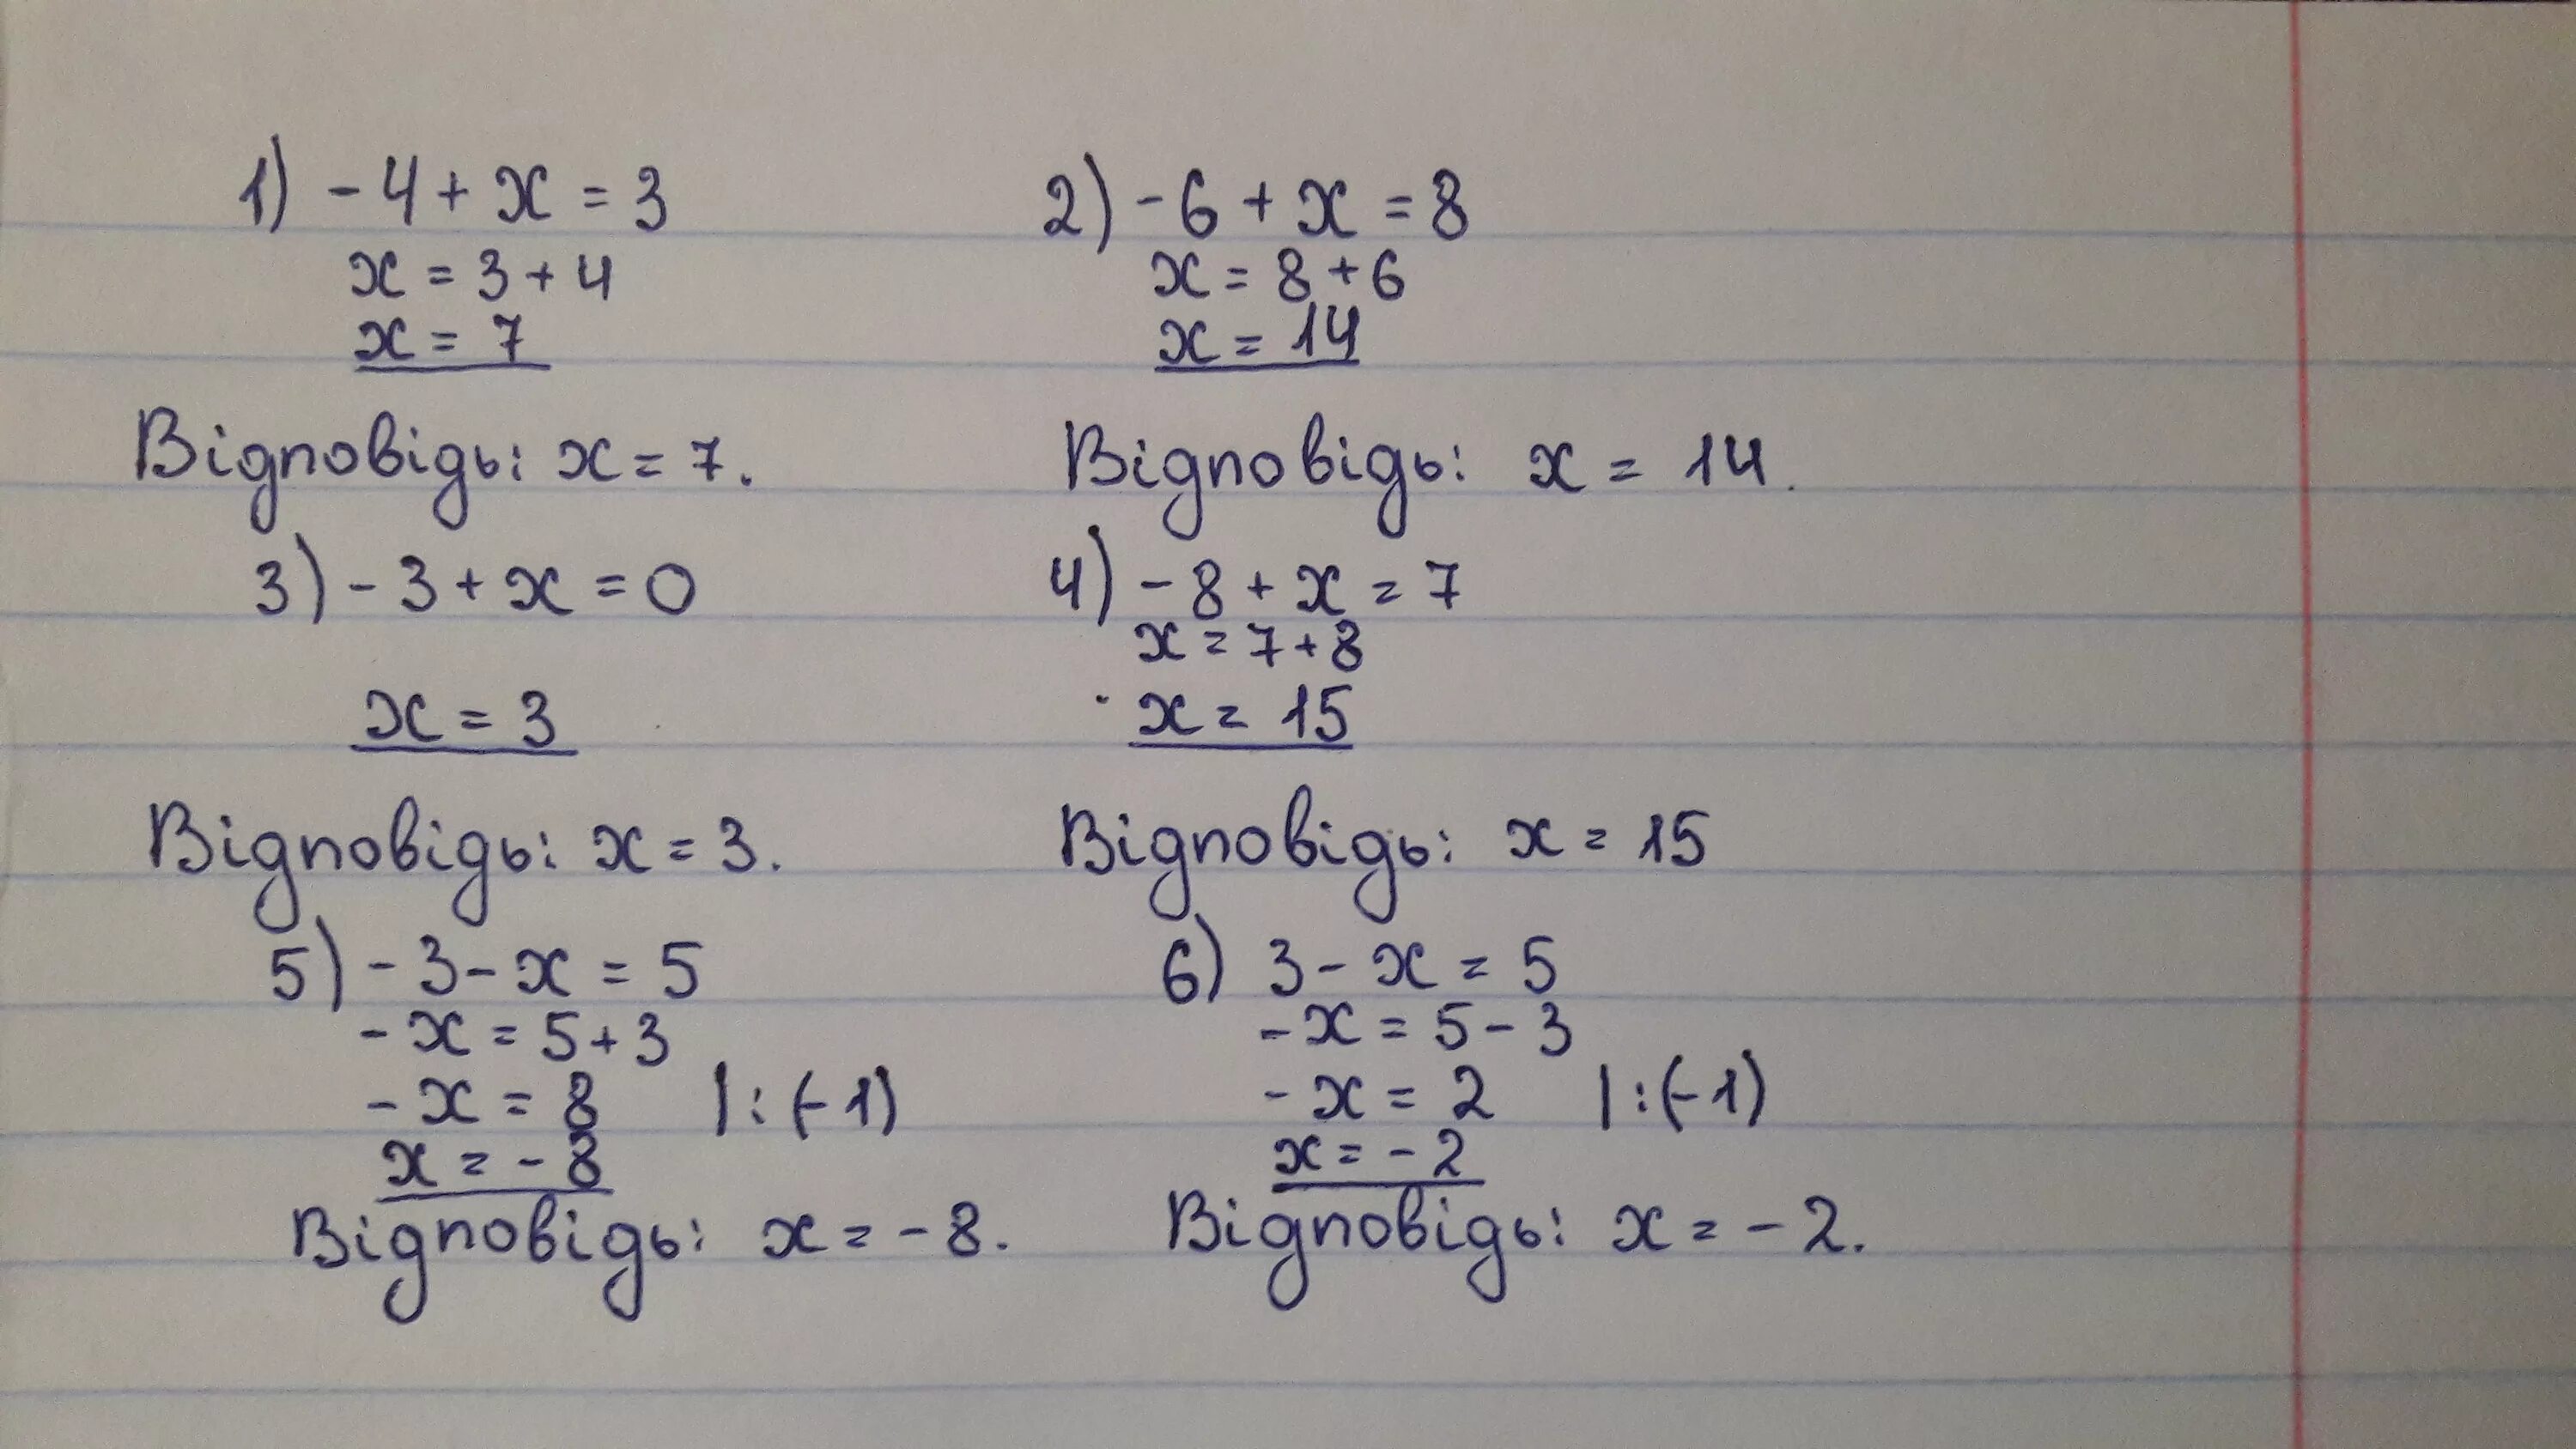 1) - 4 + x = 3
x = 3 + 4
x = 7
Відповідь: x = 7.
2) - 6 + x = 8
x = 8 + 6
x = 14
Відповідь: x = 14.
3) - 3 + x = 0
x = 3
Відповідь: x = 3.
4) - 8 + x = 7
x = 7 + 8
x = 15
Відповідь: x = 15
5) - 3 - x = 5
- x = 5 + 3
- x = 8 | : (-1)
x = - 8
Відповідь: x = - 8.
6) 3 - x = 5
- x = 5 - 3
- x = 2 | : (-1)
x = - 2
Відповідь: x = - 2.